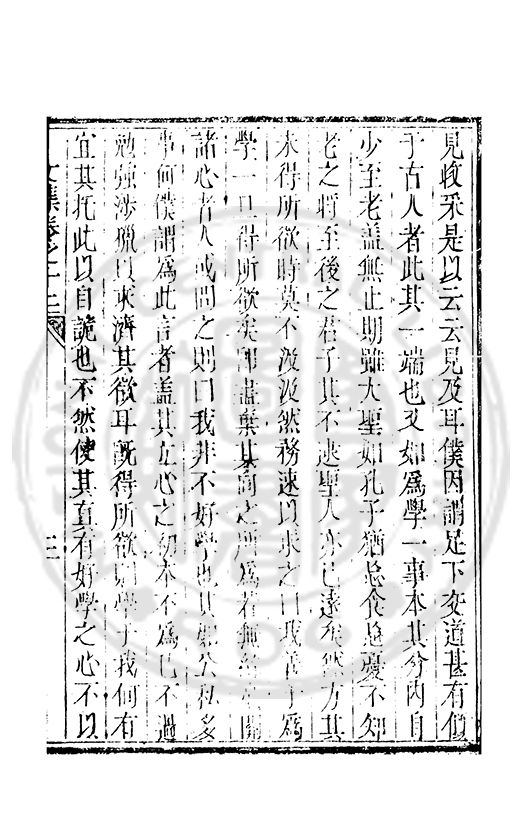 見收采是以云云見及耳僕因謂足下交道甚有似
于古人者此其一端也又如為學一事本其分內自
少至老蓋無止期雖大聖如孔子猶忘食忘憂不知
老之將至後之君子其不逮聖人亦已遠矣然方其
未得所欲時莫不汲汲然務速以求之曰我善于為
學一旦得所欲矣即盡棄其向之所為若無結
諸心者人或問之則曰我非不好學也其如公私多
事何僕謂為此言者蓋其立心之初本不為已不過
勉強涉獵以求濟其欲耳既得所欲則學于我何有
宜其托此以自詭也不然使其真有好學之心不以
文集卷之十二
三